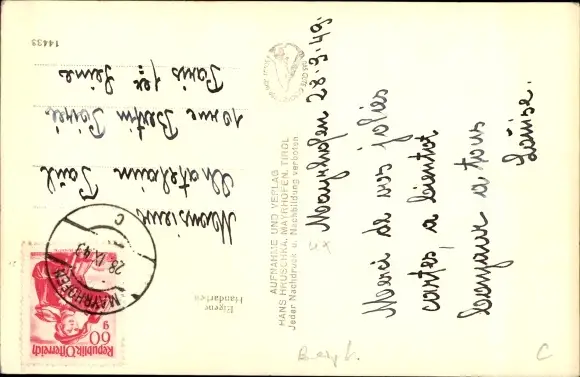 Mayrhofen 28.9.49.
Merci de vos jolies
cartes, a bientot
bonjour a tous
Louise.
AUFNAHME UND VERLAG
HANS HRUSCHKA, MAYRHOFEN, TIROL
Jeder Nachdruck u. Nachbildung verboten
Eigene
Handarbeit
Monsieur
Chatelain Paul
10 rue Bertin Poirée
Paris 1er
Seine
14439
MAYRHOFEN
28 IX 49
C
60
g
Republik Österreich
C